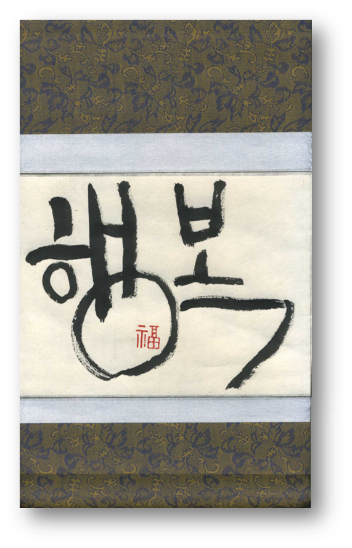 행복
福